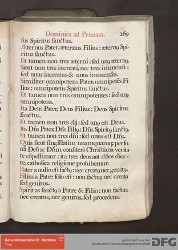 Dominica ad Primam. 269
tus Spiritus sanctus.
Æternus Pater, æternus Filius: æternus Spiritus sanctus.
Et tamen non tres æterni: sed unus æternus.
Sicut non tres increati, nec tres immensi:
sed unus increatus & unus immensus.
Similiter omnipotens Pater, omnipotens Filius: omnipotens Spiritus sanctus.
Et tamen non tres omnipotentes: sed unus
omnipotens.
Ita Deus Pater, Deus Filius: Deus Spiritus
sanctus.
Et tamen non tres dii: sed unus est Deus.
Ita Dñs Pater, Dñs Filius: Dñs Spiritus sanctus.
Et tamen non tres Dñi: sed unus est Dñs.
Quia sicut singillatim unamquamque personam
Deum
Christiana
tres deos aut
Pater a nullo est factus: nec creatus nec genitus.
Filius a Patre solo est: non factus, nec creatus
sed genitus.
Spiritus sanctus a Patre & Filio: non factus
nec creatus, nec genitus, sed procedens.
DFG